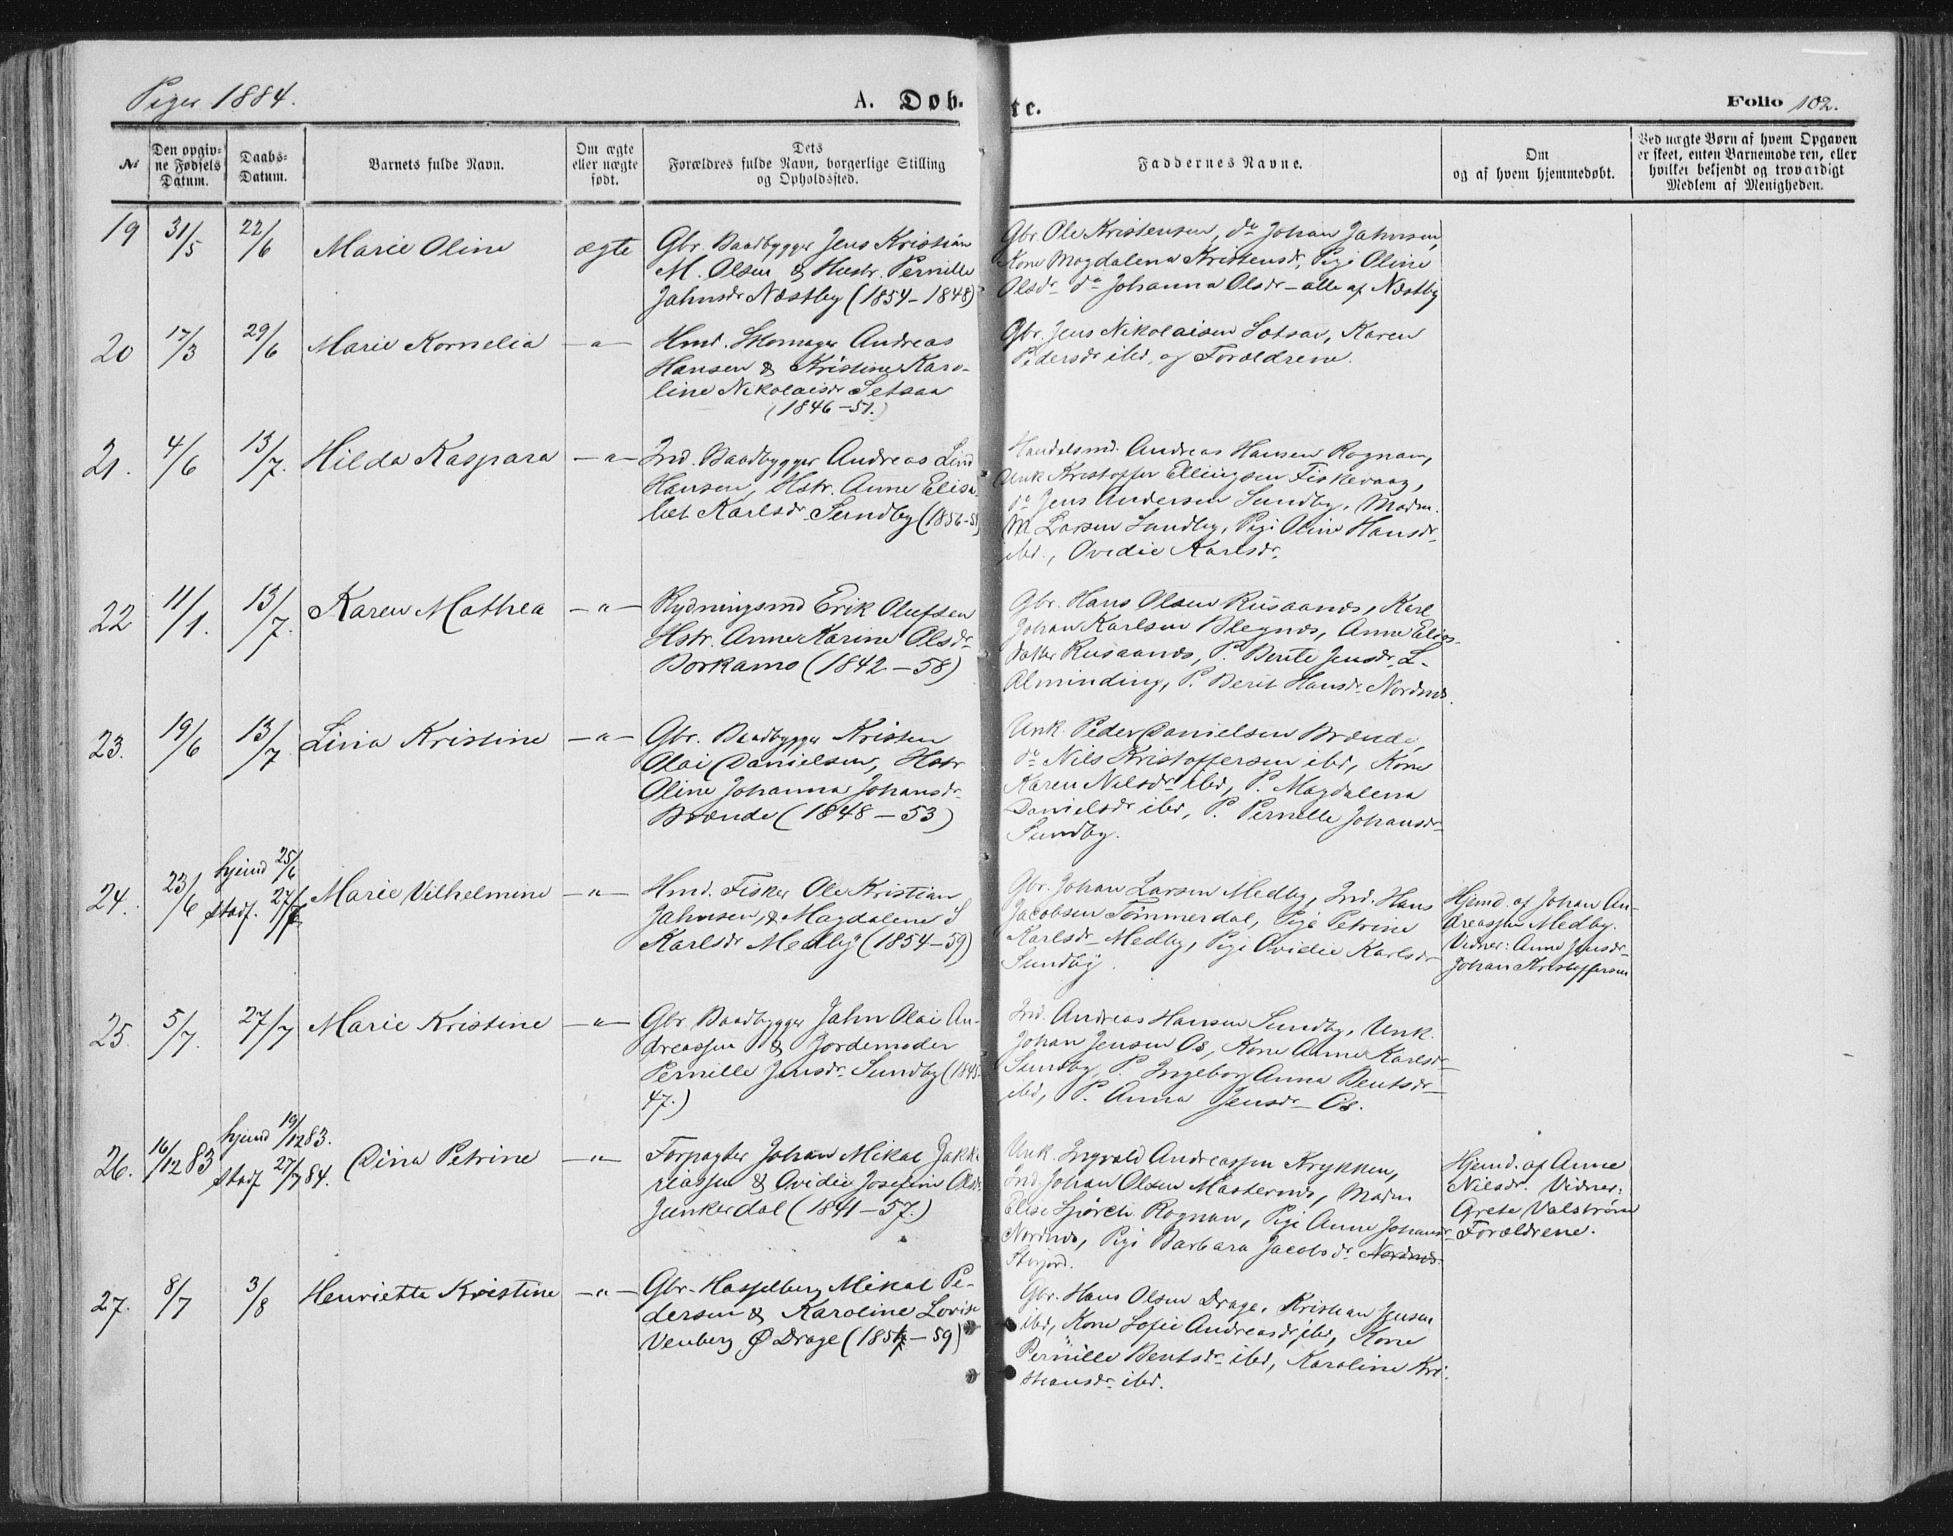 Piger 1884.
A. Døb-
te.
Folio 102.
No
Den opgiv-
ne Fødsels
Datum.
Daabs-
Datum.
Barnets fulde Navn.
Om ægte
eller uægte
født.
Dets
Forældres fulde Navn, borgerlige Stilling
og Opholdssted.
Faddernes Navne.
Om
og af hvem hjemmedøbt.
Ved uægte Børn af hvem Opgaven
er skeet, enten Barnemoderen, eller
hvilket bekjendt og troværdigt
Medlem af Menigheden.
19 31/5 22/6 Marie Oline ægte
Gbr. Baadbygger Jens Kristian
M. Olsen & Hustr. Pernille
Jahnsdr Næstby (1854-1848)
Gbr. Ole Kristensen, do Johan Jahnsen,
Kone Magdalena Kristensdr, Pige Oline
Olsdr do Johanna Olsdr - alle af Næstby
20 17/3 29/6 Marie Kornelia -"-
Hmd. Skomager Andreas
Hansen & Kristine Karo-
line Nikolaisdr Setsaa
(1846-51.)
Gbr. Jens Nikolaisen Sotsaa, Karen
Pedersdr ibd, og Forældrene.
21. 4/6 13/7. Hilda Kaspara -"-
Ind. Baadbygger Andreas Lind
Hansen, Hstr. Anne Elisa-
bet Karlsdr Sundby (1856-5
Handelsmd. Andreas Hansen Rognan,
Unk Kristoffer Ellingsen Fiskevaag,
do Jens Andersen Sundby, Madm.
M Larsen Sundby, Pige Oline Hansdr
ibd., Ovidie Karlsdr
22 11/1. 13/7. Karen Mathea -"-
Rydningsmd Erik Olufsen
Hstr. Anne Karine Olsdr
Borkamo (1842-58)
Gbr. Hans Olsen Rusaanes, Karl
Johan Karlsen Blegnes, Anne Elias-
datter Rusaanes, P. Berte Jensdr L-
Alminding, P. Berit Hansdr Nordnes.
23. 19/6 13/7 Lina Kristine -"-
Gbr. Baadbygger Kristen
Olai Danielsen, Hstr
Oline Johanna Johansdr
Brænde (1848-53)
Unk. Peder Danielsen Brænde,
do Nils Kristoffersen ibd, Kone
Karen Nilsdr ibd, P. Magdalena
Danielsdr ibd, P. Pernille Johansdr
Sundby.
24. 23/6 hjemd 25/6
stadf. 27/7 Marie Vilhelmine -"-
Hmd. Fisker Ole Kristian
Jahnsen, & Magdalene S
Karlsdr Medby (1854-59)
Gbr. Johan Larsen Medby, Ind. Hans
Jacobsen Tømmerdal, Pige Petrine
Karlsdr Medby, Pige Ovidie Karlsdr
Sundby.
Hjemd. af Johan An-
dreassen Medby.
Vidner: Anne Jensdr
Johan Kristoffersen
25. 5/7. 27/7 Marie Kristine -"-
Gbr. Baadbygger Jahn Olai An-
dreassen & Jordemoder
Pernille Jensdr Sundby (1845-
47.)
Ind. Andreas Hansen Sundby, Unk.
Johan Jensen Os, Kone Anne Karlsdr
Sundby, P. Ingeborg Anna Bentsdr
ibd, P. Anna Jensdr Os.
26. 16/12 83 hjemd 19/12 83.
stadf 27/7 84. Dina Petrine -"-
Forpagter Johan Mikal Zakka-
riassen & Ovidie Josefin Olsdr
Junkerdal (1841-57.)
Unk. Ingvald Andreassen Krykken,
Ind. Johan Olsen Masternes, Madm
Elise Rognan, Pige Anne Johansdr
Nordnes, Pige Barbara Jacobsdr Nordnes
Storjord.
Hjemd. af Anne
Nilsdr. Vidner:
Grete Valstrøm
Forældrene.
27. 8/7 3/8 Henriette Kristine -"-
Gbr. Hasselberg Mikal Pe-
dersen & Karoline Lovise
Venberg Ø Drage (1854-59)
Gbr. Hans Olsen Drage, Kristian Jensen
ibd, Kone Sofie Andreasdr ibd, Kone
Pernille Bentsdr ibd, Karoline Kri-
stiansdr ibd.